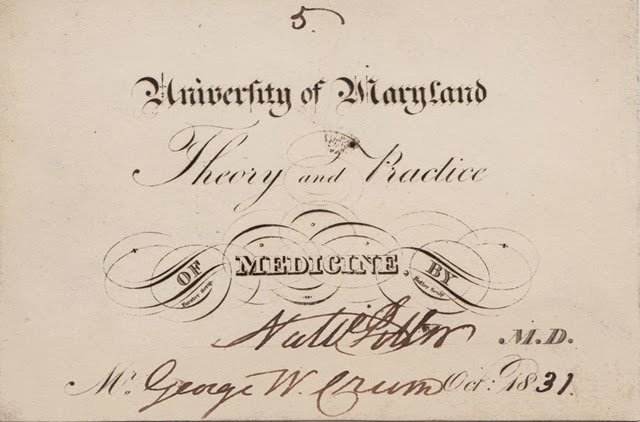 5.
University of Maryland
Theory and Practice
OF MEDICINE, BY
Nath'l Potter M.D.
Mr. George W. Crum Oct: 1831.